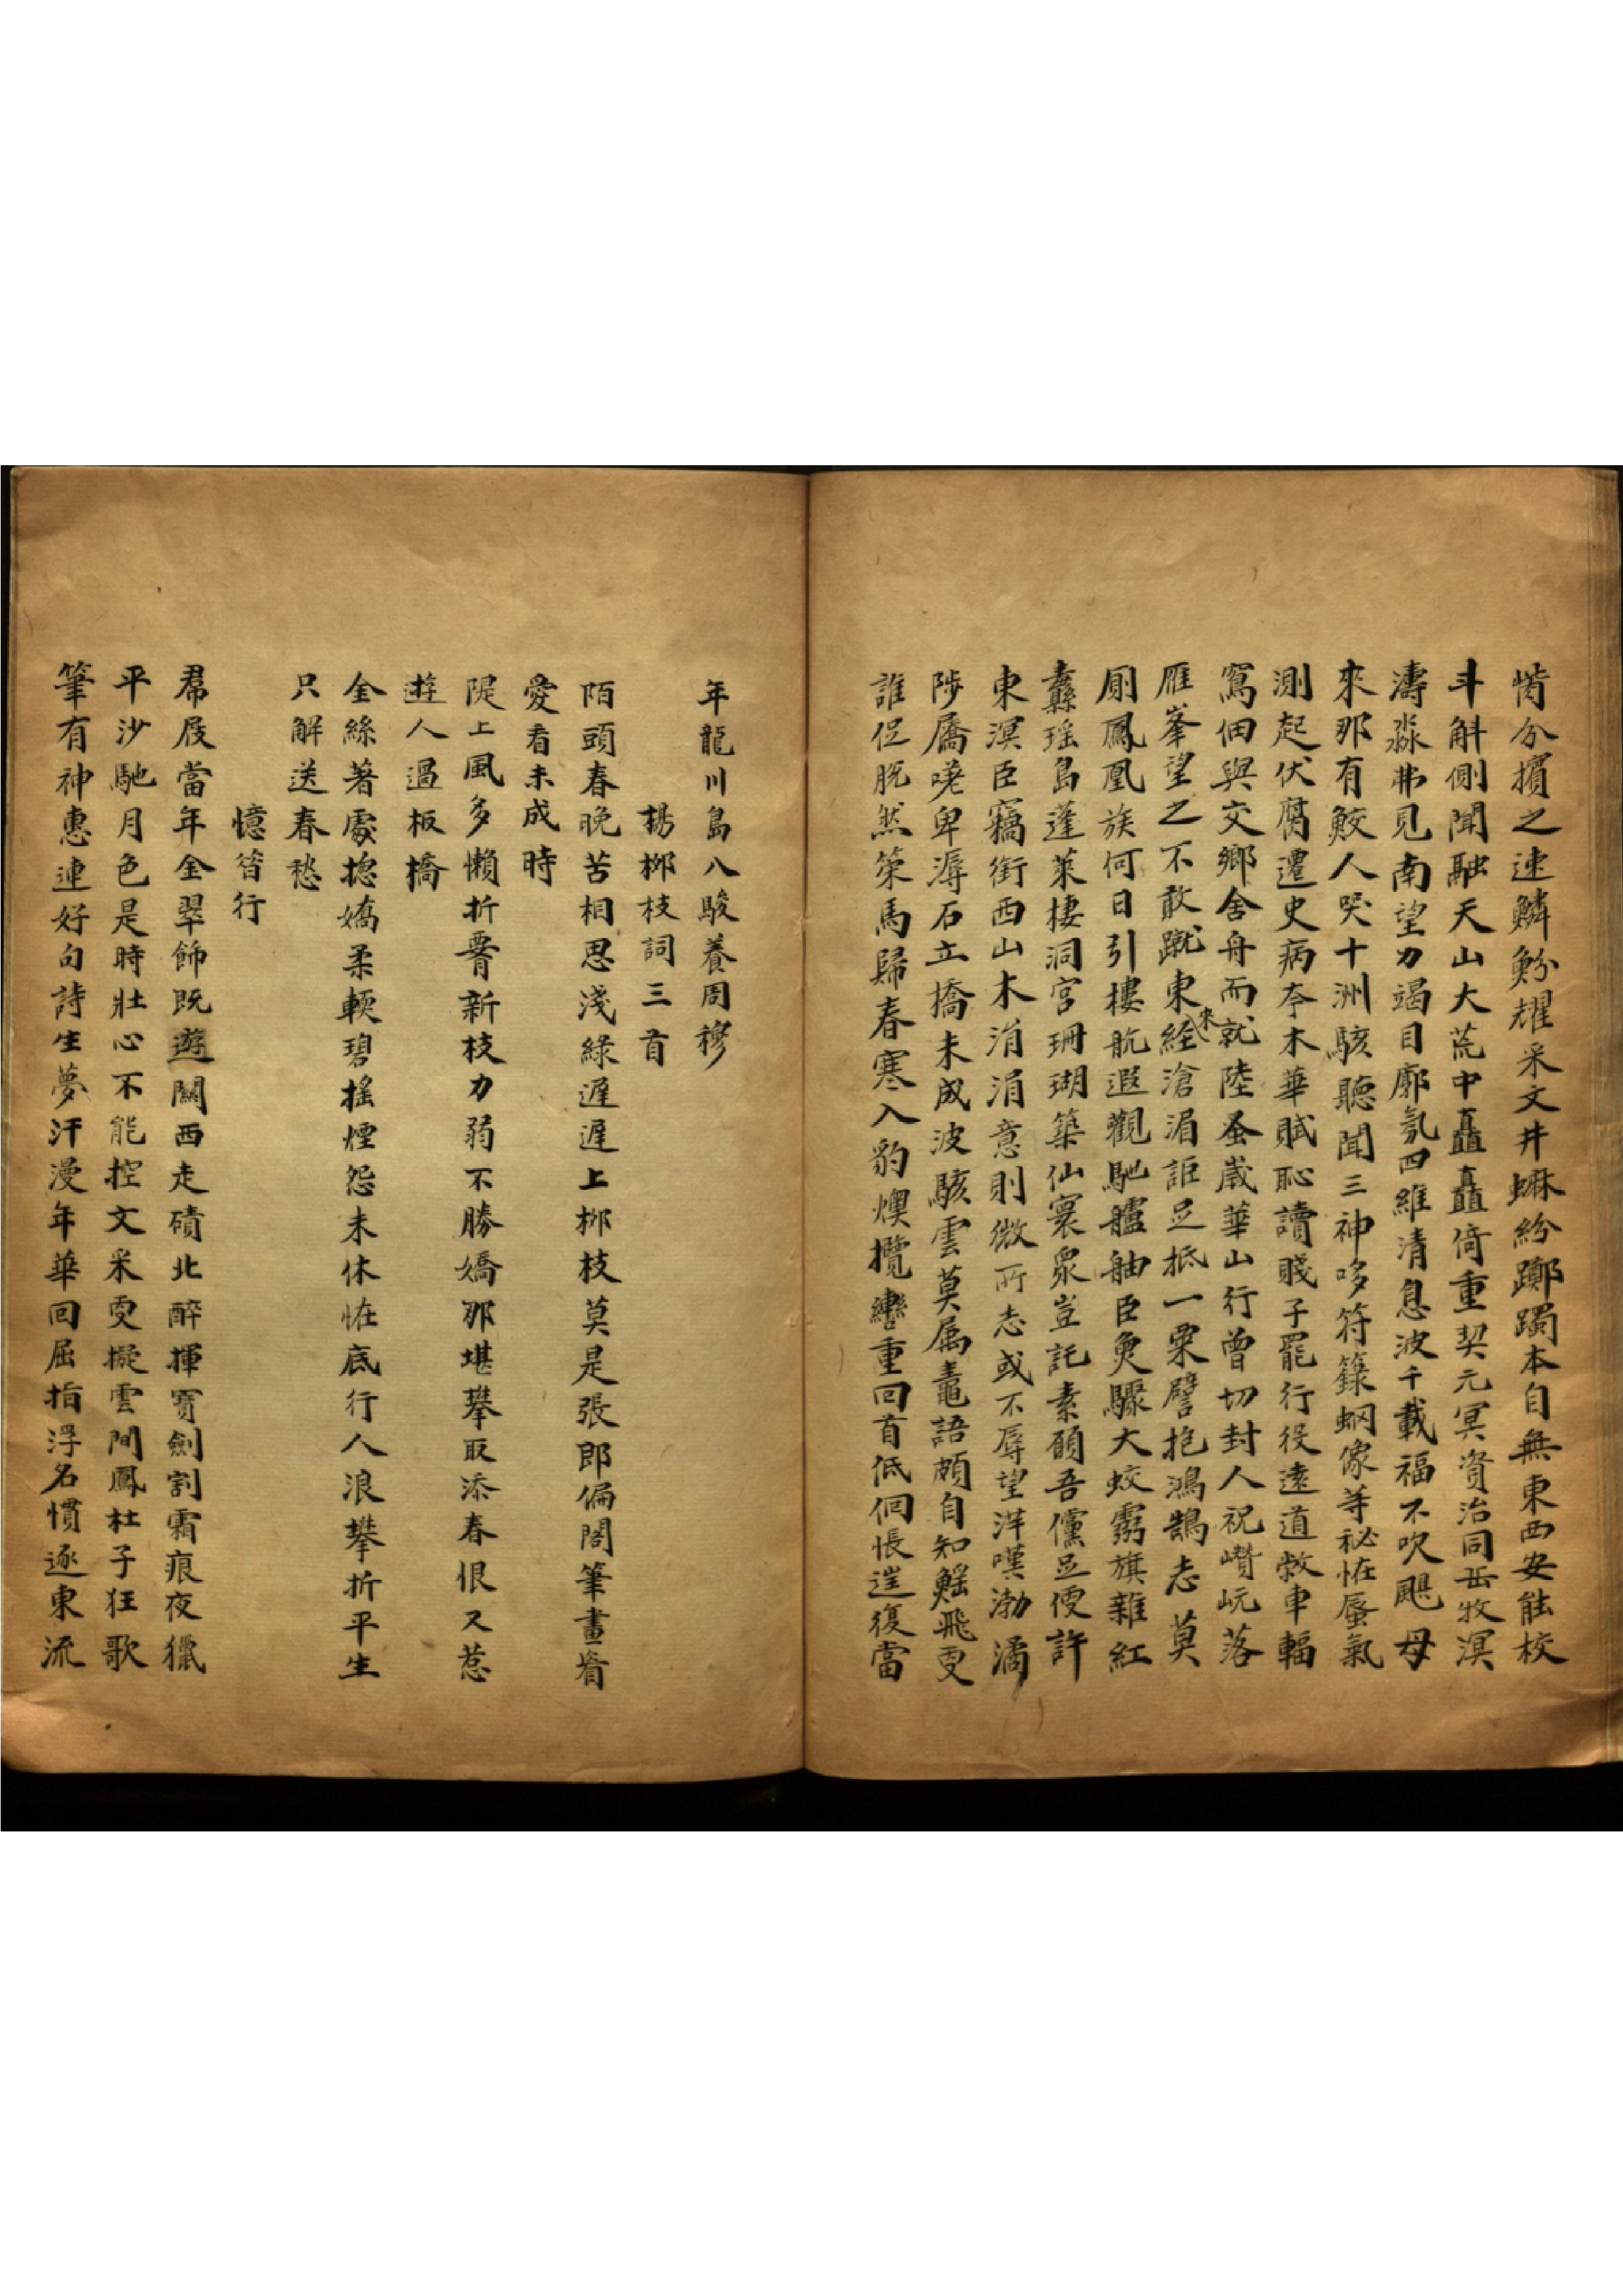 分擯之速鱗魵耀采文井蠊紛躑躅本自無東西安能校
斗斛側聞融天山大荒中矗矗倚重契元冥資治同岳牧溟
濤淼弗見南望力竭目廓氛四維清息波千載福不吹颶母
來那有鮫人哭十洲駭聽聞三神哆符籙蜩像等祕恠蜃氣
測起伏腐遷史病夸木華賦恥讀賤子罷行役遠道敝車輻
寫佃與交鄉舍舟而就陸蚤歲華山行曾切封人祝巑岏落
雁峯望之不敢蹴東來経滄湄詎足抵一粟譬抱鴻鵠志莫
廁鳳凰族何日引樓航遐觀馳艫舳臣臾驟大蛟雰旗雜紅
纛瑤島蓬萊棲洞宮珊瑚築仙寰衆豈託素願吾儻足便許
東溟臣竊銜西山木涓涓意則微所志或不辱望洋嘆渤潏
陟屩唴卑溽石立搞未成波駭雲莫屬鼃語頗自知鰩飛叓
誰促脫然策馬歸春寒入豹燠攬轡重回首低佪悵遑復當
年龍川島八駿養周穆
楊栁枝詞三首
陌頭春晚苦相思淺綠遲遲上栁枝莫是張郎偏閣筆畫眉
愛看未成時
隄上風多懶折罯新枝力弱不勝嬌那堪攀取添春恨又惹
遊人過板橋
金絲著處摠嬌柔輭碧搖煙怨未休恠底行人浪攀折平生
只解送春愁
憶笛行
帬屐當年金翠飾既遊關西走磧北醉揮寶劍割霜痕夜獵
平沙馳月色是時壯心不能控文采叓擬雲間鳳杜子狂歌
筆有神惠連好句詩生夢汗漫年華回屈指浮名慣逐東流